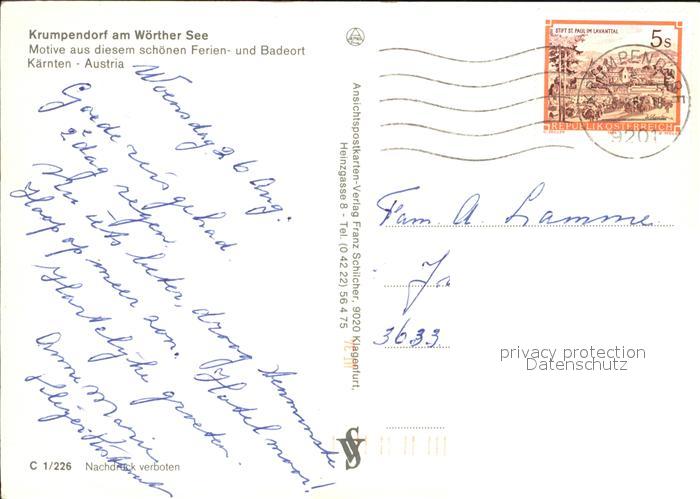 Krumpendorf am Wörther See
Motive aus diesem schönen Ferien- und Badeort
Kärnten - Austria
Woensdag 26 Aug.
Goede reis gehad.
2 dag regen.
Nu iets beter, droog tenminste!
Hoop op meer zon. Hadel maar!
Hartelijke groeten
Anne Marie
C 1/226 Nachdruck verboten
Ansichtspostkarten-Verlag Franz Schilcher, 9020 Klagenfurt,
Heinzgasse 8 - Tel. (0 42 22) 56 4 75
STIFT ST. PAUL IM LAVANTTAL
5 s
REPUBLIK ÖSTERREICH
KRUMPENDORF
9201
Fam. A. Lamme
3633
privacy protection
Datenschutz